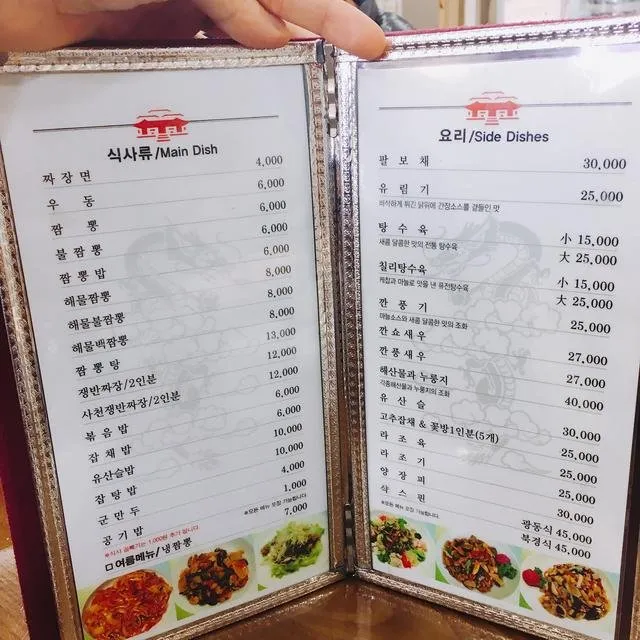 식사류/Main Dish
짜장면 4,000
우동 6,000
짬뽕 6,000
불짬뽕 6,000
짬뽕밥 6,000
해물짬뽕 8,000
해물불짬뽕 8,000
해물백짬뽕 8,000
짬뽕탕 13,000
쟁반짜장/2인분 12,000
사천쟁반짜장/2인분 12,000
볶음밥 6,000
잡채밥 6,000
유산슬밥 10,000
잡탕밥 10,000
군만두 4,000
공기밥 1,000
※식사 곱빼기는 1,000원 추가 됩니다. ※모든 메뉴 포장 가능합니다.
여름메뉴/냉짬뽕 7,000
요리/Side Dishes
팔보채 30,000
유림기 25,000
바삭하게 튀긴 닭위에 간장소스를 곁들인 맛
탕수육 小 15,000
새콤 달콤한 맛의 전통 탕수육 大 25,000
칠리탕수육 小 15,000
케찹과 마늘로 맛을 낸 퓨전탕수육 大 25,000
깐풍기 25,000
마늘소스와 새콤 달콤한 맛의 조화
깐쇼새우 27,000
깐풍새우 27,000
해산물과 누룽지 40,000
각종해산물과 누룽지의 조화
유산슬 30,000
고추잡채 & 꽃방1인분(5개) 25,000
라조육 25,000
라조기 25,000
양장피 30,000
삭스핀 광동식 45,000
※모든 메뉴 포장 가능합니다. 북경식 45,000